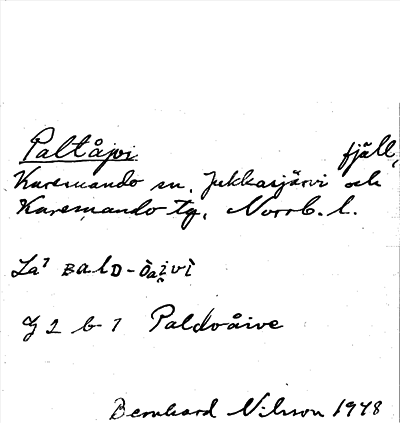 Paltåjvi fjäll,
Karesuando sn, Jukkasjärvi och
Karesuando tg, Norrb. l.
La¹ BalD-òai̯vì
J 2 b 1 Paldoåive
Bernhard Nilsson 1948